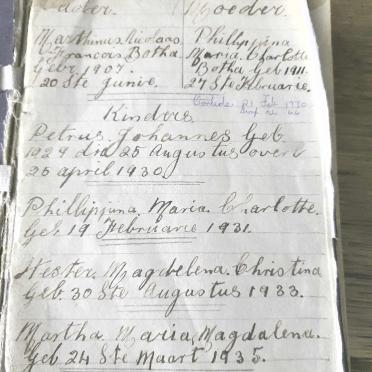 Vader. Moeder.
Marthinus Nicolaas
Francois Botha
Gebr 1907.
20 Ste Junie.
Phillipjina
Maria. Charlotte
Botha Geb 1911.
27 Ste Februarie.
Kinders
Petrus. Johannes Geb.
1929 die 25 Augustus overl
25 april 1930.
Phillipjina. Maria. Charlotte.
Geb 19 Februarie 1931.
Hester. Magdelena. Christina
Geb. 30 Ste Augustus 1933.
Martha. Maria. Magdalena.
Geb 24 Ste Maart 1935.